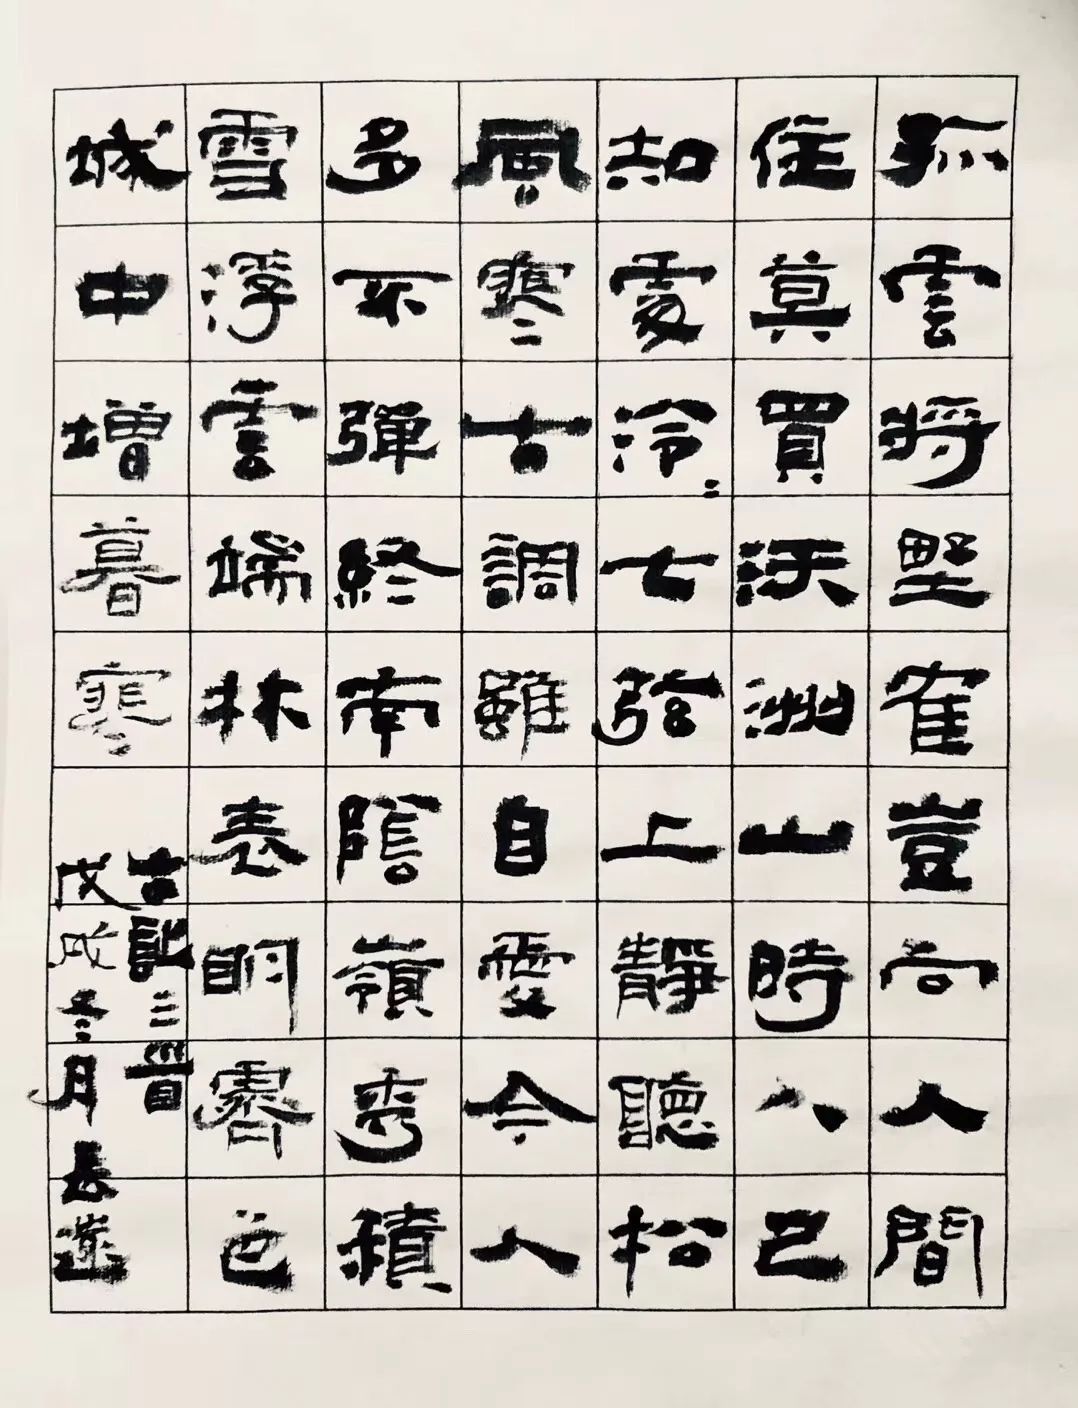 孤雲將野隺豈向人間
住莫買沃洲山時人已
知處泠：七弦上靜聽松
風寒古調雖自愛今人
多不彈終南陰嶺秀積
雪浮雲端林表明霽色
城中增暮寒
古詩三首
戊戌冬月長